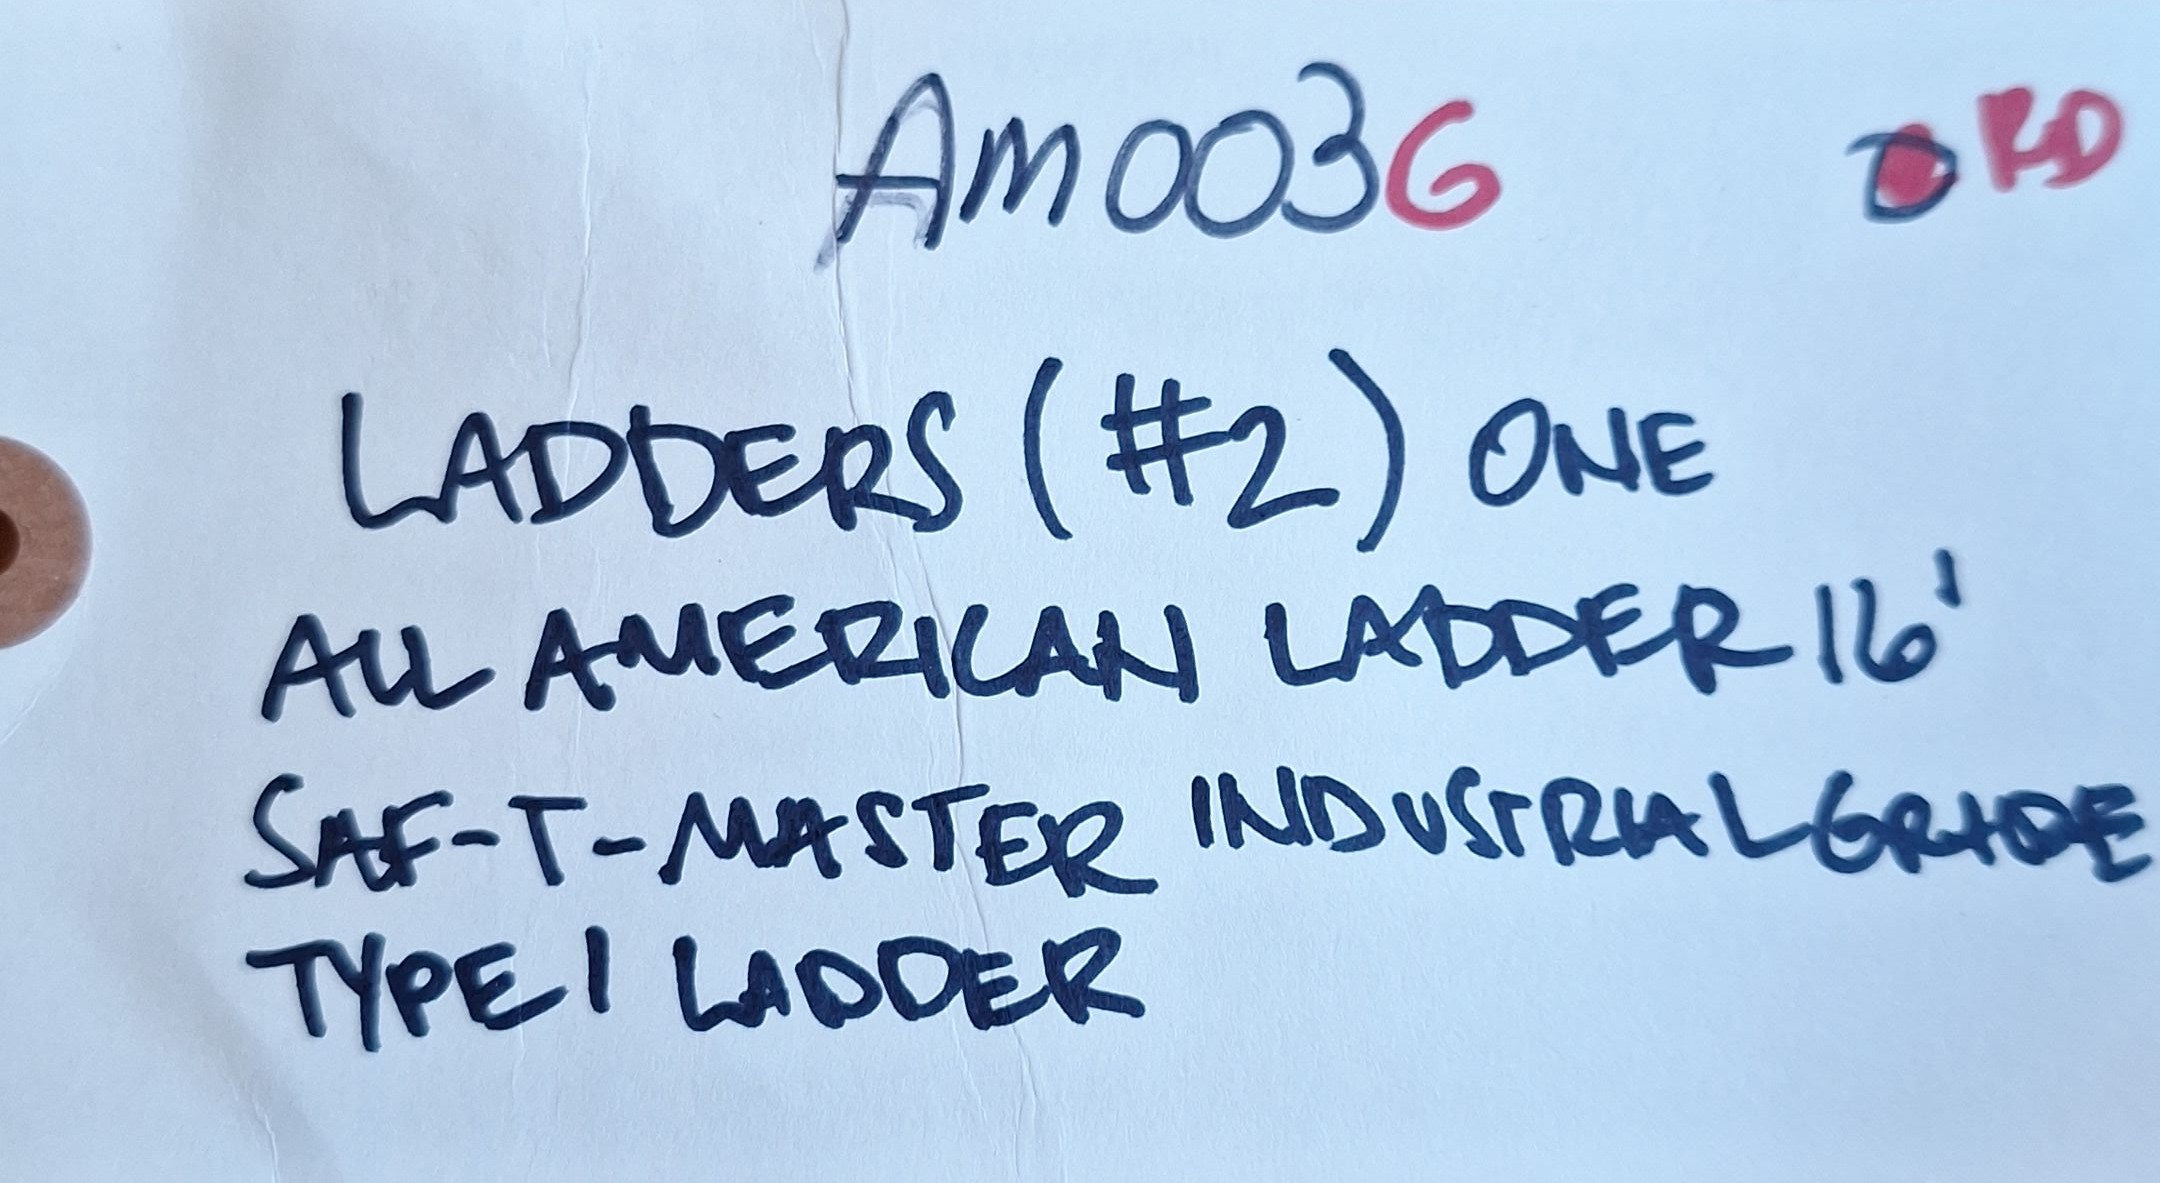 AM0036 RD
LADDERS (#2) ONE
ALL AMERICAN LADDER 16'
SAF-T-MASTER INDUSTRIAL GRADE
TYPE 1 LADDER